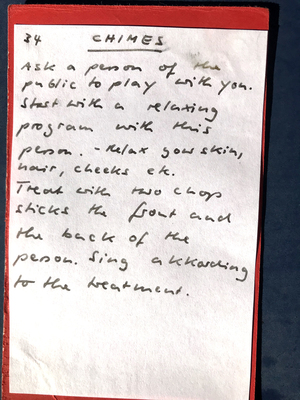 34 CHIMES
Ask a person of the
public to play with you.
Start with a relaxing
program with this
person. - Relax your skin,
hair, cheeks etc.
Treat with two chop
sticks the front and
the back of the
person. Sing akkording
to the treatment.